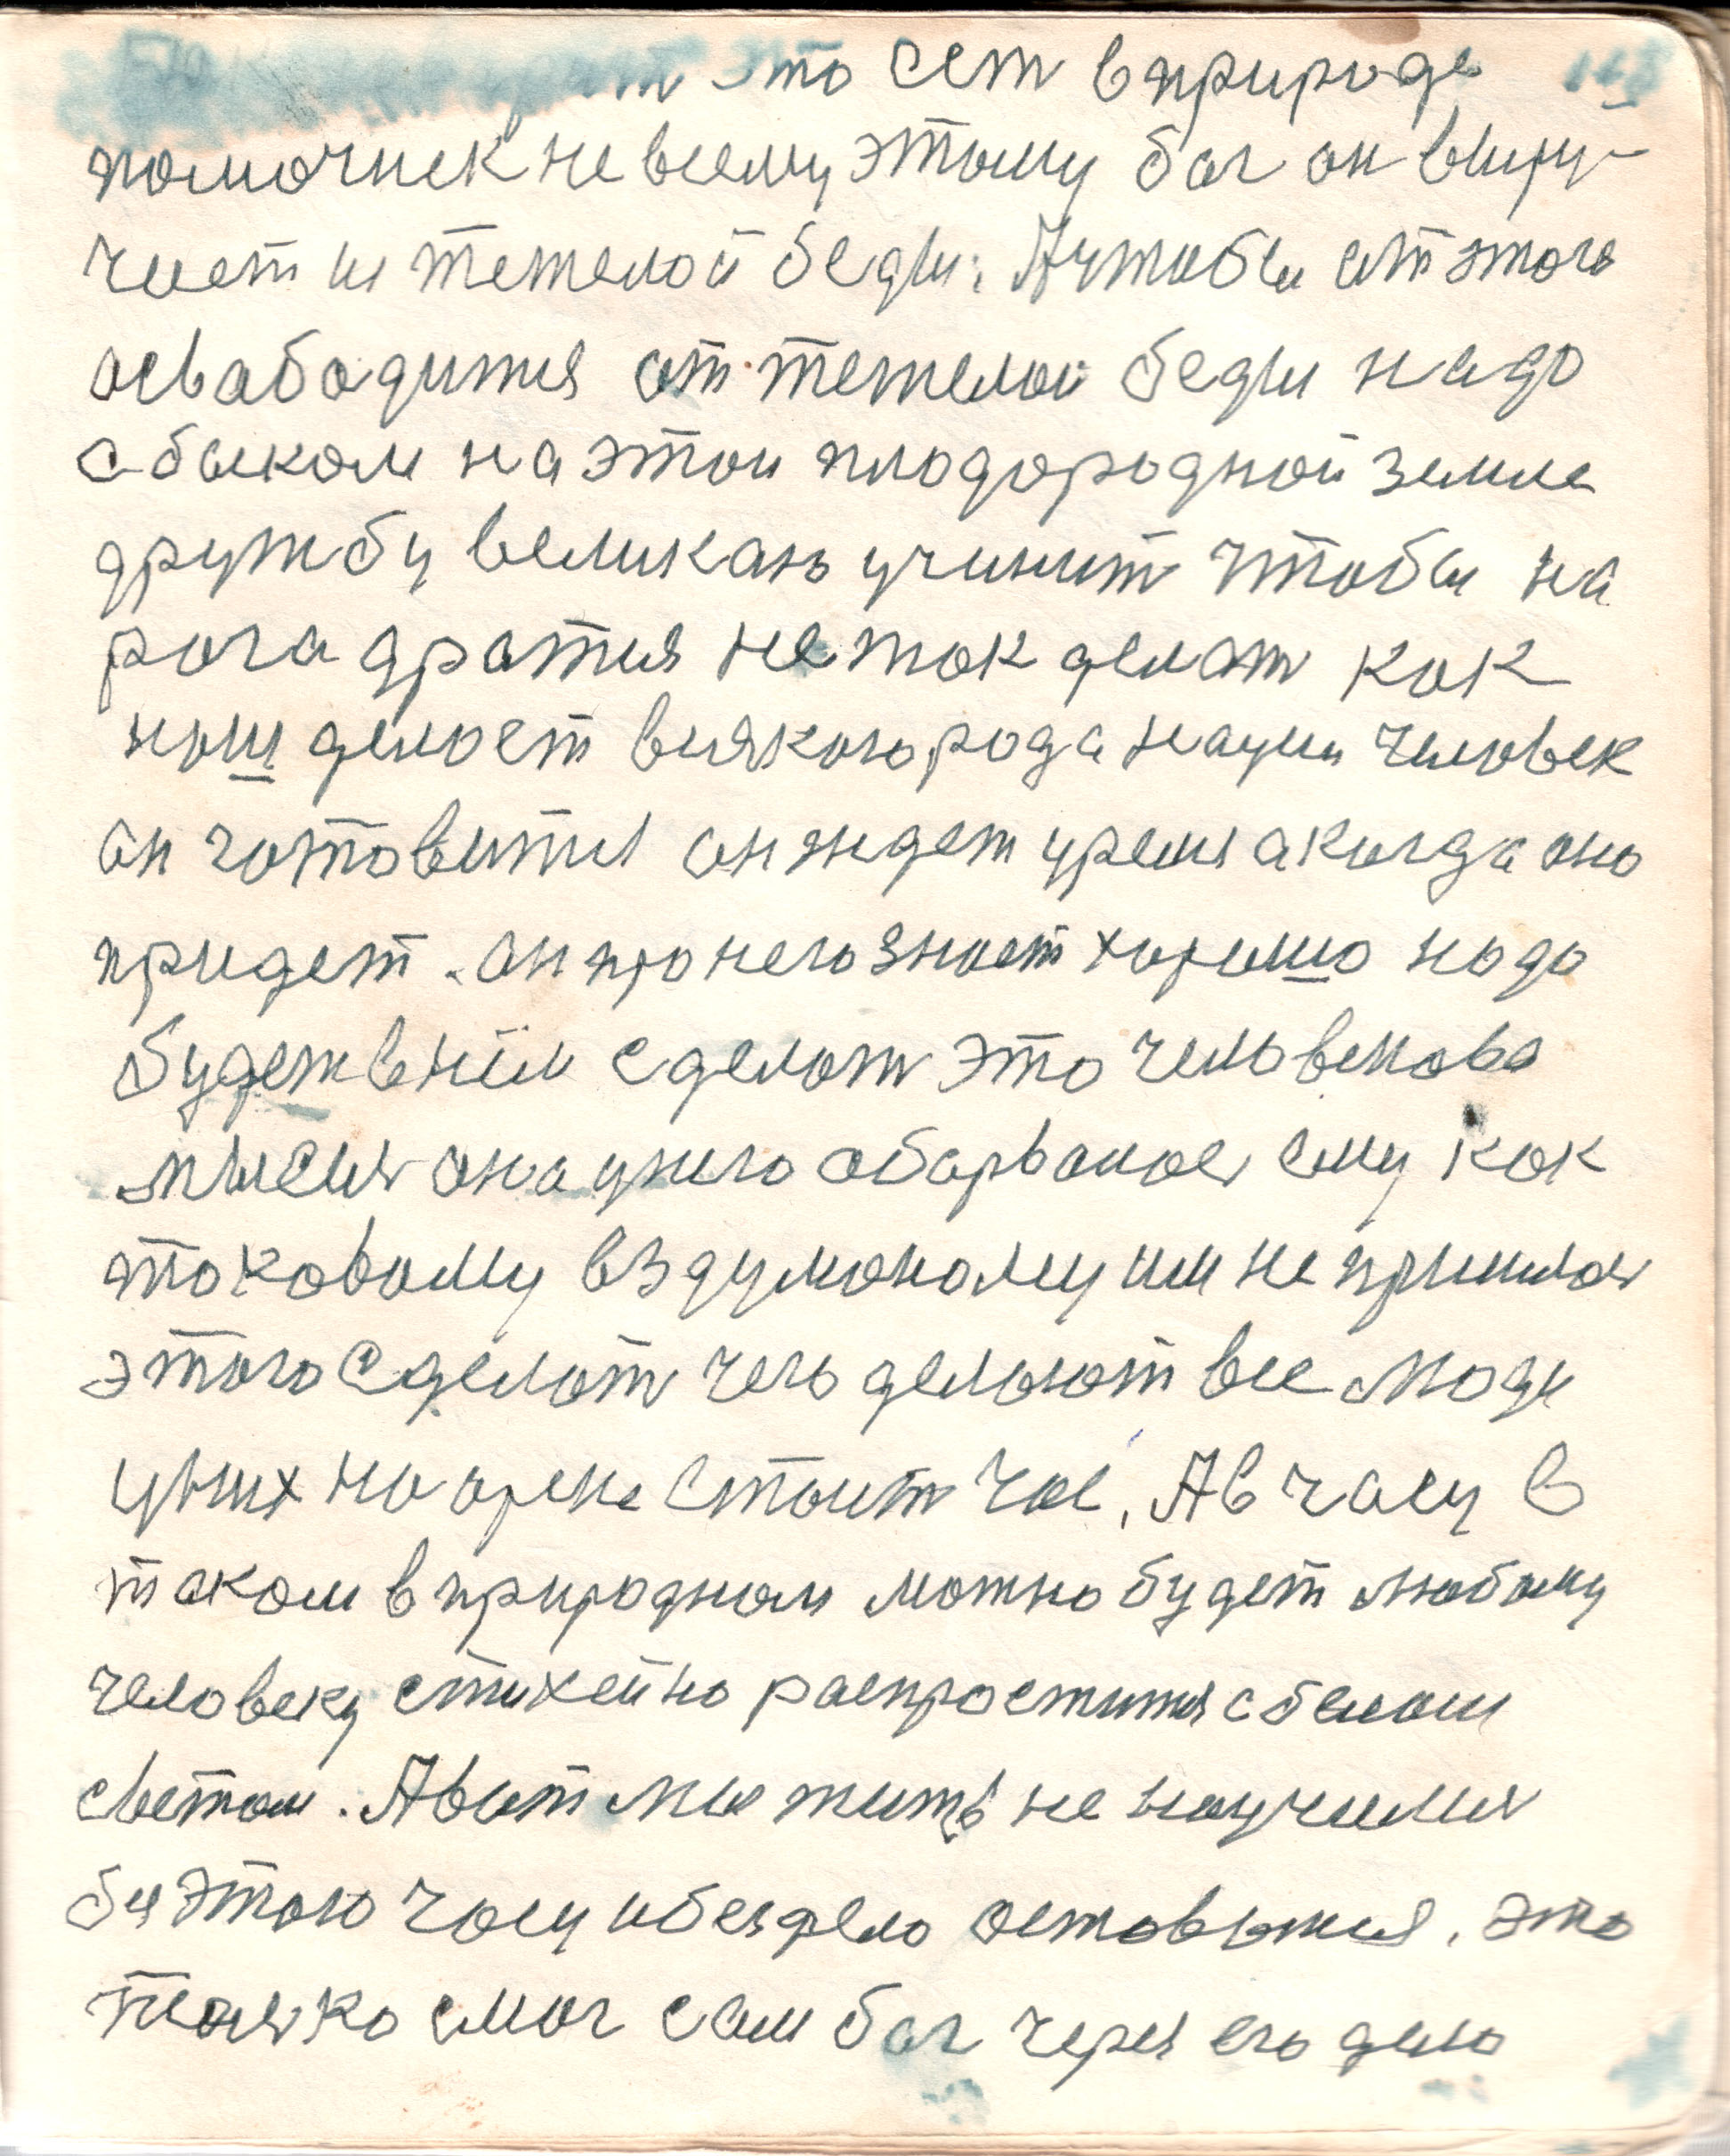 это сет в природе 118
помочник не всему этому бог он выру-
чает из тежелой беды. А чтобы от этого
освабодится от тежелой беды надо
с быком на этой плодородной земле
дружбу великаю учинит чтобы на
рога дратся не так делат как
наш делает всякого рода нации человек
он готовится он ждет уремя а когда оно
придет. он про него знает хорошо надо
будет в нём сделат это человекова
мысля она у него оборваноя ему как
таковому вздуманому им не пришлоя
этого сделат чего делают все люди
у них на арене стоит час. А в часу в
таком в природном можно будет любому
человеку стихейно распростится с белом
светом. А вот мы жить не научимся
бя этого часу и без дело оставатся. это
толко смог сам бог через его дело